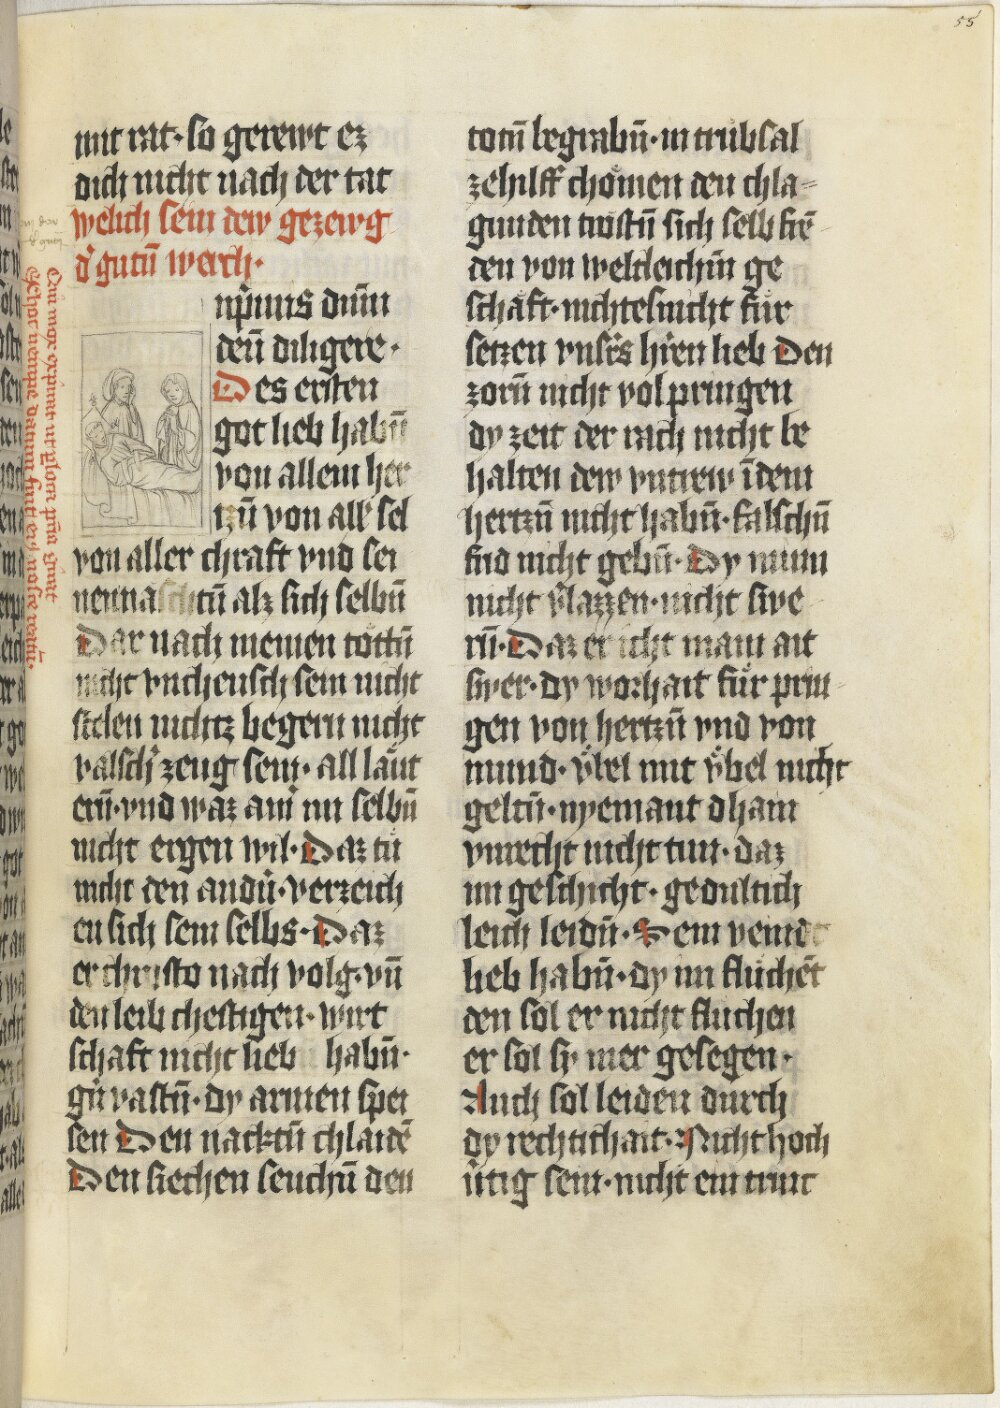 55
mit rat · so gerewt ez
dich nicht nach der tat
welich sein dew gezewg
d' gutn̄ werch ·
np̄mis dn̄m
den̄ diligere ·
Des ersten
got lieb habn̄
von allem her
tzn̄ von all' sel
von aller chraft vnd sei
nen nachtn̄ alz sich selbn̄
Dar nach niemen tottn̄
nicht vncheusch sein nicht
stelen nichtz begern nicht
valsch' zeug sein · all läut
ern̄ · vnd waz ain' im selbn̄
nicht ergen wil · Daz tu
nicht den andn̄ · verzeich
en sich sein selbs · Daz
er christo nach volg · vn̄
den leib chestigen · wirt
schaft nicht lieb habn̄ ·
gn̄ vastn̄ · dy armen spei
sen Den nacktn̄ chlaidē
Den siechen seuchn̄ den
totn̄ begrabn̄ · in trubsal
ze hilff chömen den chla=
gunden trostn̄ sich selb frē
den von weltleichn̄ ge
schäft · nichtes nicht für
setzen vnsr̄s hr̄en lieb Den
zorn̄ nicht volpringen
dy zeit der rach nicht be
halten dew vntrew īdem
hertzn̄ nicht habn̄ · falschn̄
frid nicht gebn̄ · Dy minn
nicht v'lazzen · nicht swe
rn̄ · Daz er icht main ait
swer · dy worhait für prin
gen von hertzn̄ vnd von
mund · v̈bel mit v̈bel nicht
geltn̄ · nyemant dhain
vnrecht nicht tun · daz
im geschicht · gedultich
leich leidn̄ · Sein veindt
lieb habn̄ · dy im fluchēt
den sol er nicht fluchen
er sol sy mer gesegen ·
Auch sol leiden durch
dy rechtichait · Nicht hoch
v̈tig sein · nicht ein trinc